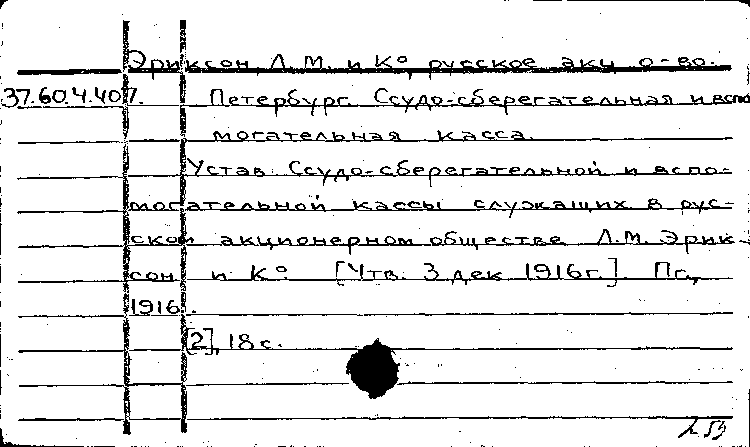 Эриксон, Л. М. и К°, русское акц. о-во.
37.60.4.407. Петербург. Ссудо-сберегательная и вспо
могательная касса.
Устав Ссудо-сберегательной и вспо-
могательной кассы служащих в рус-
ском акционерном обществе Л.М. Эрик-
сон и К° [Утв. 3 дек 1916г.]. Пг.,
1916.
[2], 18 с.